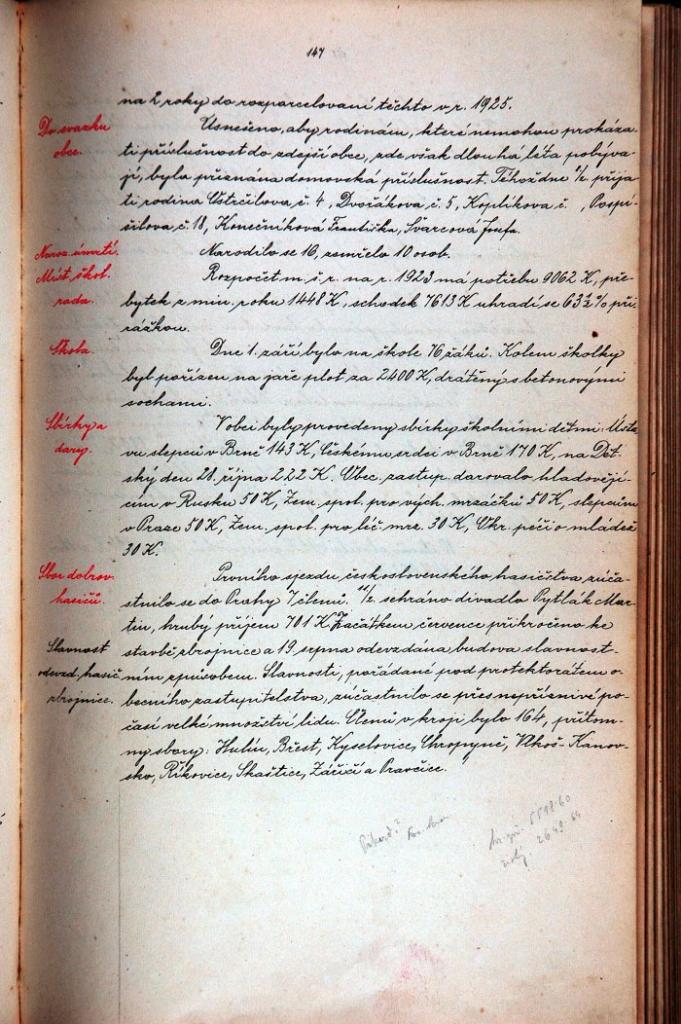 147
na 2 roky do rozparcelovaní těchto v r. 1925.
Do svazku
obce.
Usneseno, aby rodinám, které nemohou prokáza-
ti příslušnost do zdejší obce, zde však dlouhá léta pobýva-
jí, byla přiznána domovská příslušnost. Téhož dne 1/2 přija-
ti rodina Ustrčilova č. 4, Dvořákova č. 5, Koplíkova č. , Pospí-
šilova č. 18, Konečníková Františka, Švarcová Josefa.
Naroz. úmrtí.
Narodilo se 16, zemřelo 10 osob.
Míst. škol.
rada.
Rozpočet m. š. r. na r. 1923 má potřebu 9062 K, pře-
bytek z min. roku 1448 K, schodek 7613 K uhradí se 63½ % při-
rážkou.
Škola.
Dne 1. září bylo na škole 76 žáků. Kolem školky
byl pořízen na jaře plot za 2400 K, drátěný s betonovými
sochami.
Sbírky a
dary.
V obci byly provedeny sbírky školními dětmi: Ústa-
vu slepců v Brně 143 K, Českému srdci v Brně 170 K, na Dět-
ský den 28. října 222 K. Obec. zastup. darovalo hladovějí-
cím v Rusku 50 K, Zem. spol. pro vých. mrzáčků 50 K, slepcům
v Praze 50 K, Zem. spol. pro léč. mrz. 30 K, Okr. péči o mládež
30 K.
Sbor dobrov.
hasičů.
Prvního sjezdu československého hasičstva zúča-
stnilo se do Prahy 7 členů. 11/2 sehráno divadlo Pytlák Mar-
tin, hrubý příjem 701 K. Začátkem července přikročeno ke
Slavnost
odevzd. hasič.
zbrojnice.
stavbě zbrojnice a 19. srpna odevzdána budova slavnost-
ním způsobem. Slavnosti, pořádané pod protektorátem o-
becního zastupitelstva, zúčastnilo se přes nepříznivé po-
časí velké množství lidu. Členů v kroji bylo 164, přítom-
ny sbory: Hulín, Břest, Kyselovice, Chropyně, Vlkoš-Kanov-
sko, Říkovice, Skaštice, Záříčí a Pravčice.